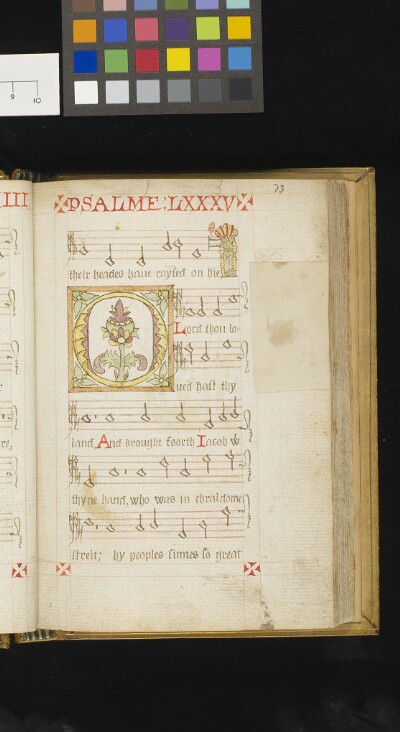 9 10
III
PSALME: LXXXV
73
their heades haue raysed on hie
O
Lord thou lo-
ued hast thy
land, And brought foorth Iacob w
thyne hand, who was in thraldome
streit; hy peoples sinnes so great
re,